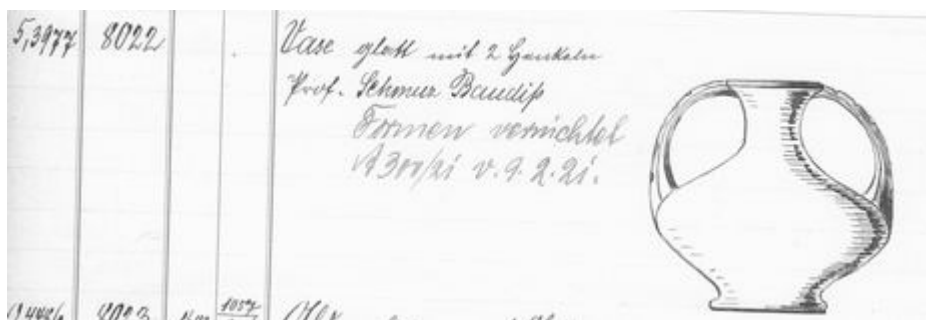 5,3977 8022 Vase glatt mit 2 Henkeln
Prof. Schmuz Baudiß
Formen vernichtet
A 300/21 v. 9.2.21.
8023
1057